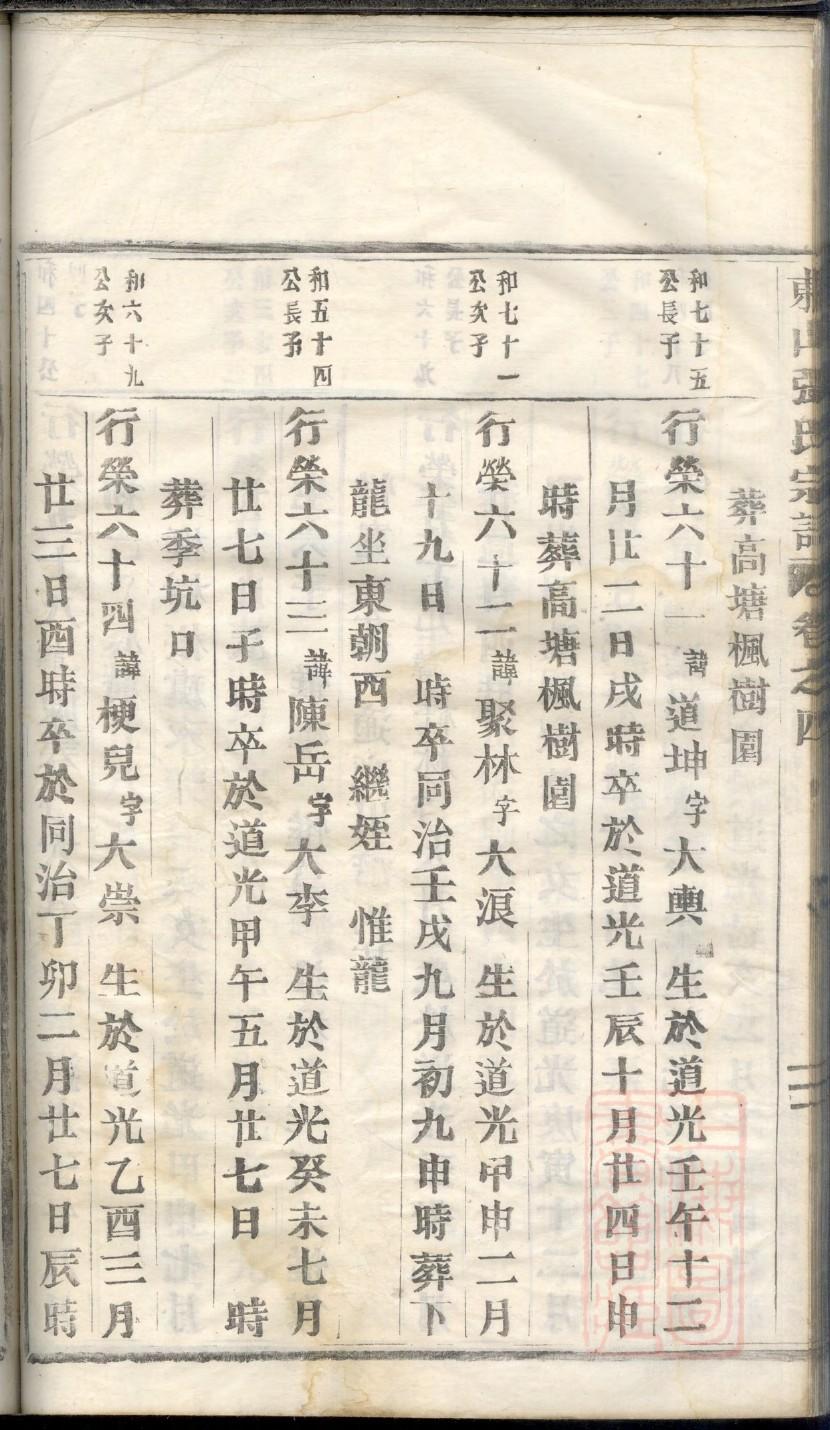 東山張氏宗譜 卷之四
葬高塘楓樹園
和七十五
公長子
行榮六十一諱道坤字大輿 生於道光壬午十二
月廿二日戌時卒於道光壬辰十月廿四日申
時葬高塘楓樹園
和七十一
公次子
行榮六十二諱聚林字大浪 生於道光甲申二月
十九日 時卒同治壬戌九月初九申時葬下
龍坐東朝西 繼姪 惟龍
和五十四
公長子
行榮六十三諱陳岳字大李 生於道光癸未七月
廿七日子時卒於道光甲午五月廿七日 時
葬季坑口
和六十九
公次子
行榮六十四諱梗兒字大崇 生於道光乙酉三月
廿三日酉時卒於同治丁卯二月廿七日辰時